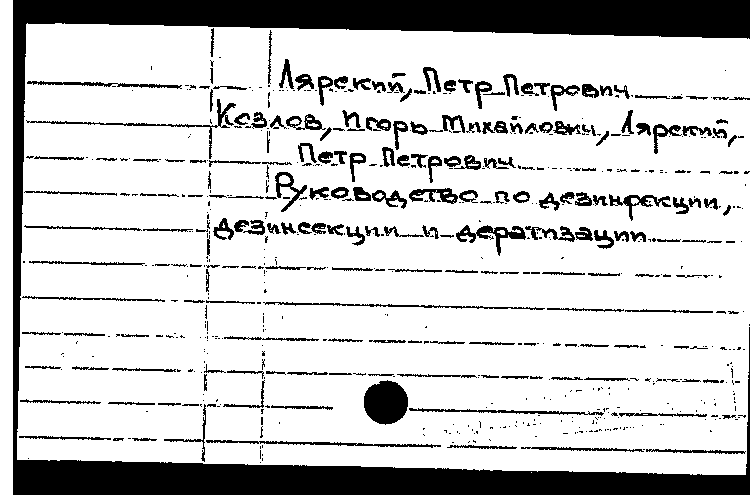 Лярский, Петр Петрович
Козлов, Игорь Михайлович, Лярский,
Петр Петрович
Руководство по дезинфекции,
дезинсекции и дератизации